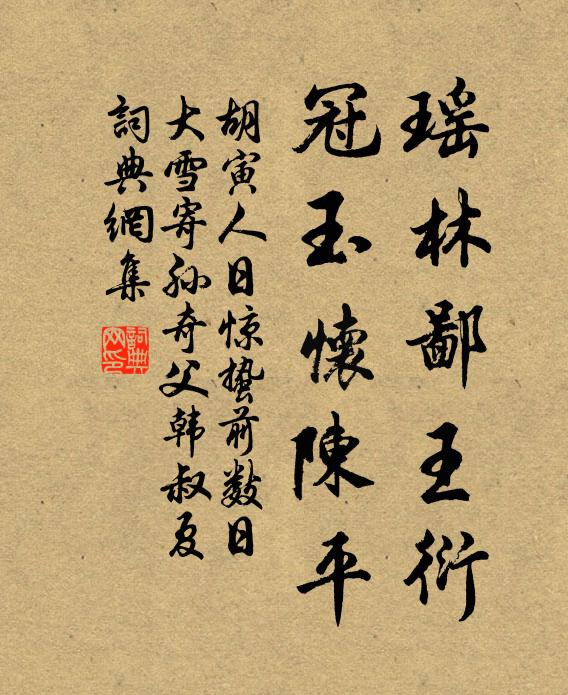 瑶林鄙王衍
冠玉懷陳平
胡寅人日惊蛰前数日
大雪寄孙奇父韩叔夏
詞典網集
詞典网印